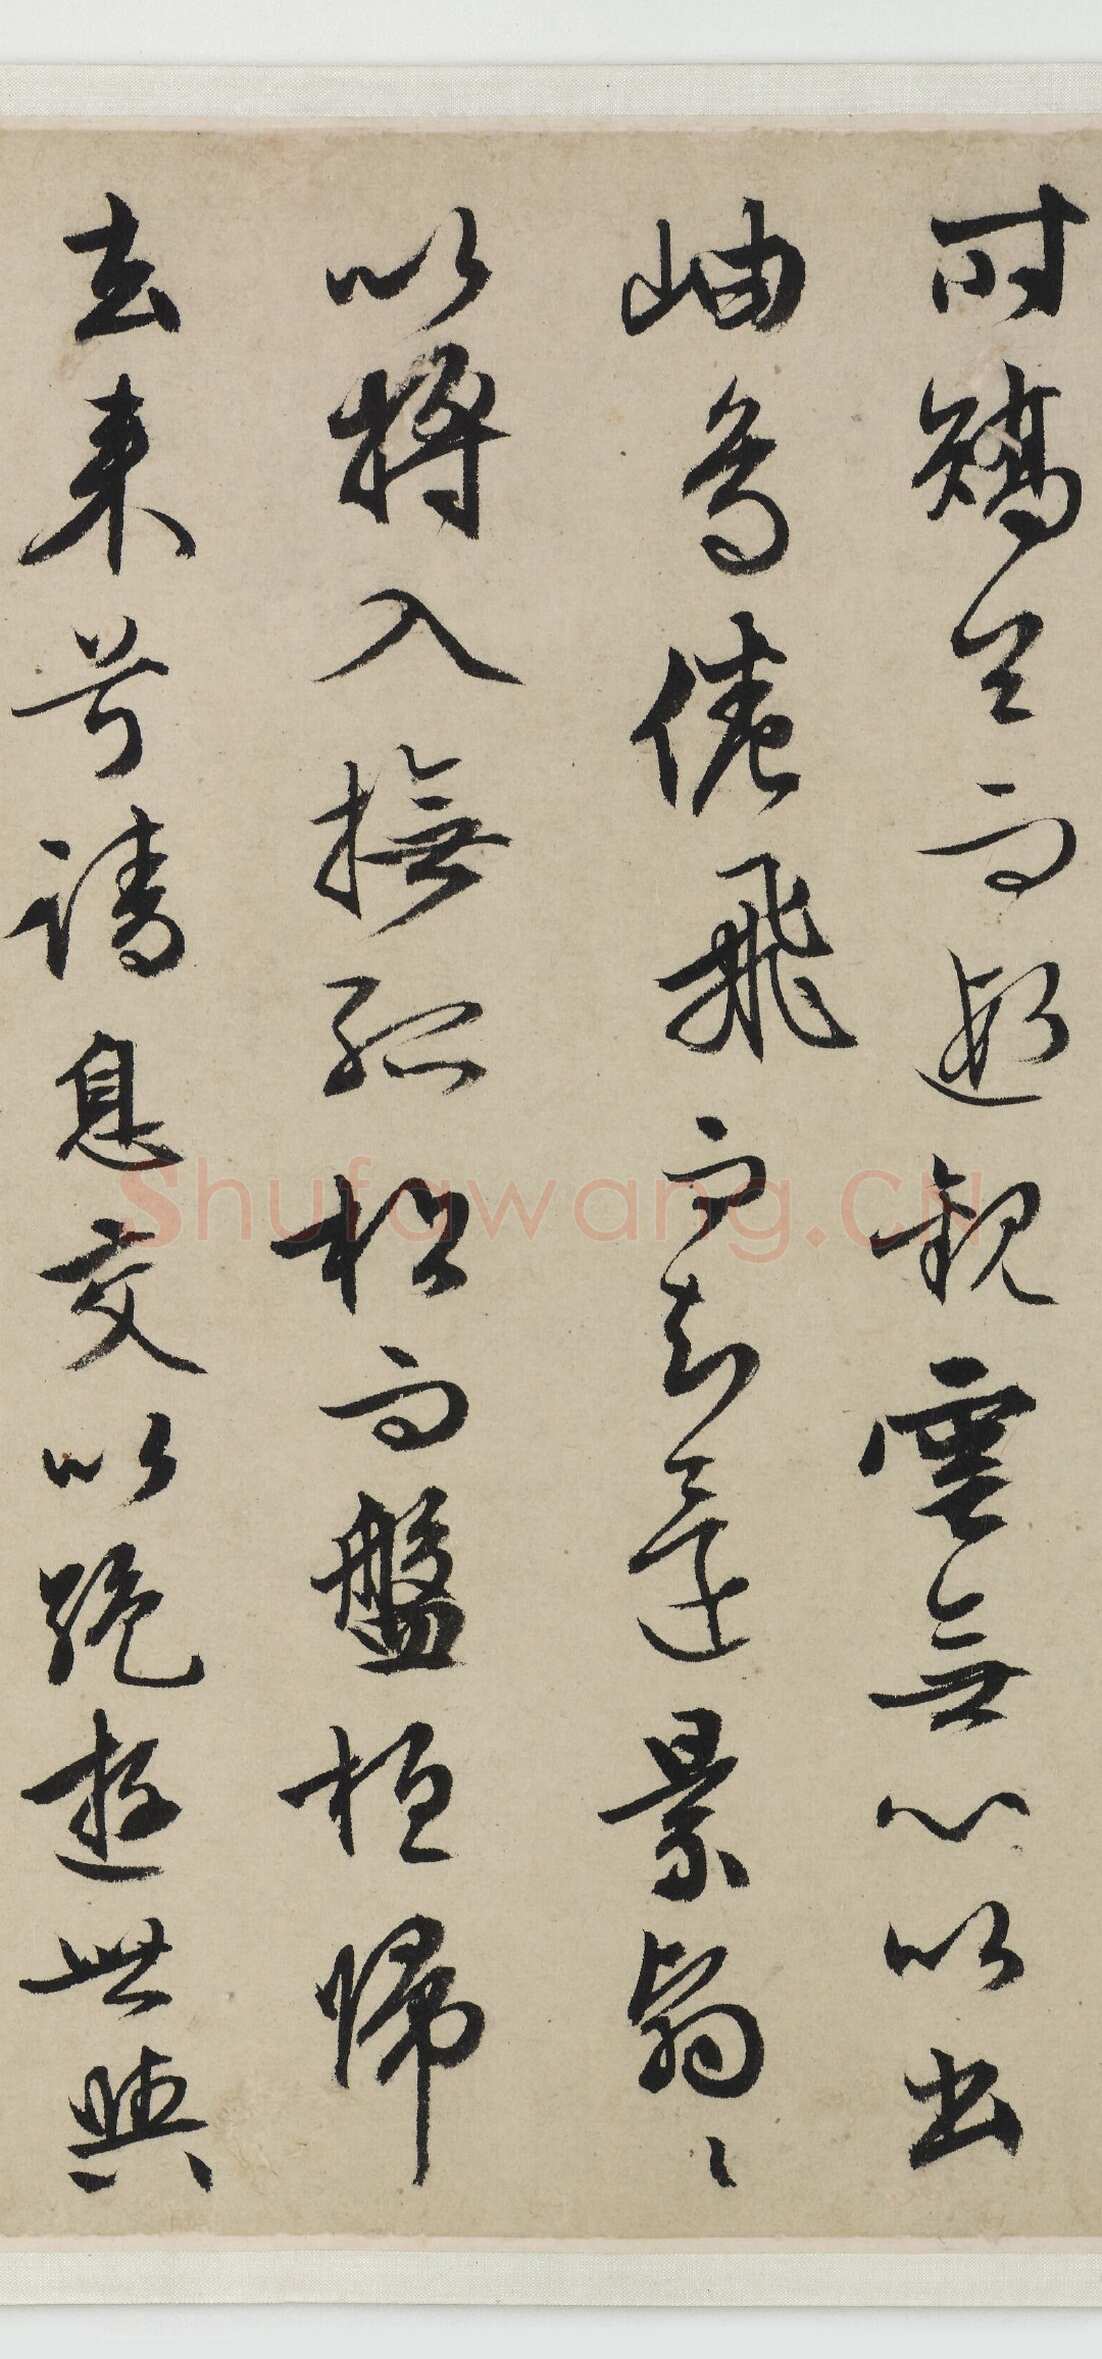 時矯首而遐觀雲無心以出
岫鳥倦飛而知還景翳〻
以將入撫孤松而盤桓歸
去來兮請息交以絕遊世與
Shufawang.CN